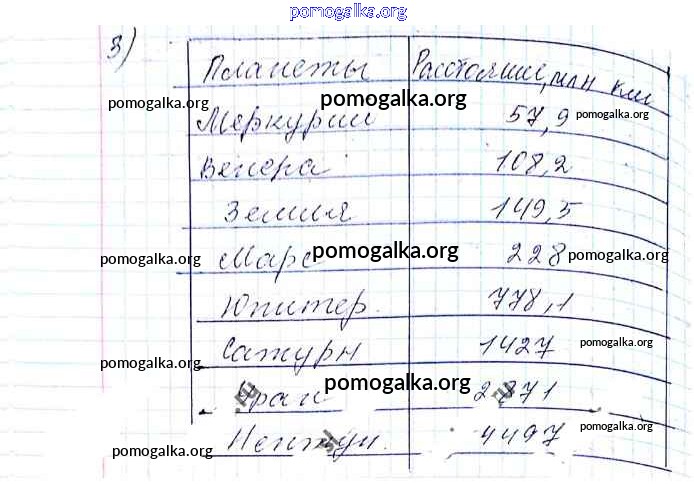 pomogalka.org
3)
Планеты Расстояние, млн км
pomogalka.org
Меркурий 57,9 pomogalka.org
Венера 108,2
Земля 149,5
pomogalka.org Марс pomogalka.org 228 pomogalka.org
Юпитер 778,1
Сатурн 1427 pomogalka.org
pomogalka.org
Уран pomogalka.org 2871
Нептун. 4497 pomogalka.org
pomogalka.org